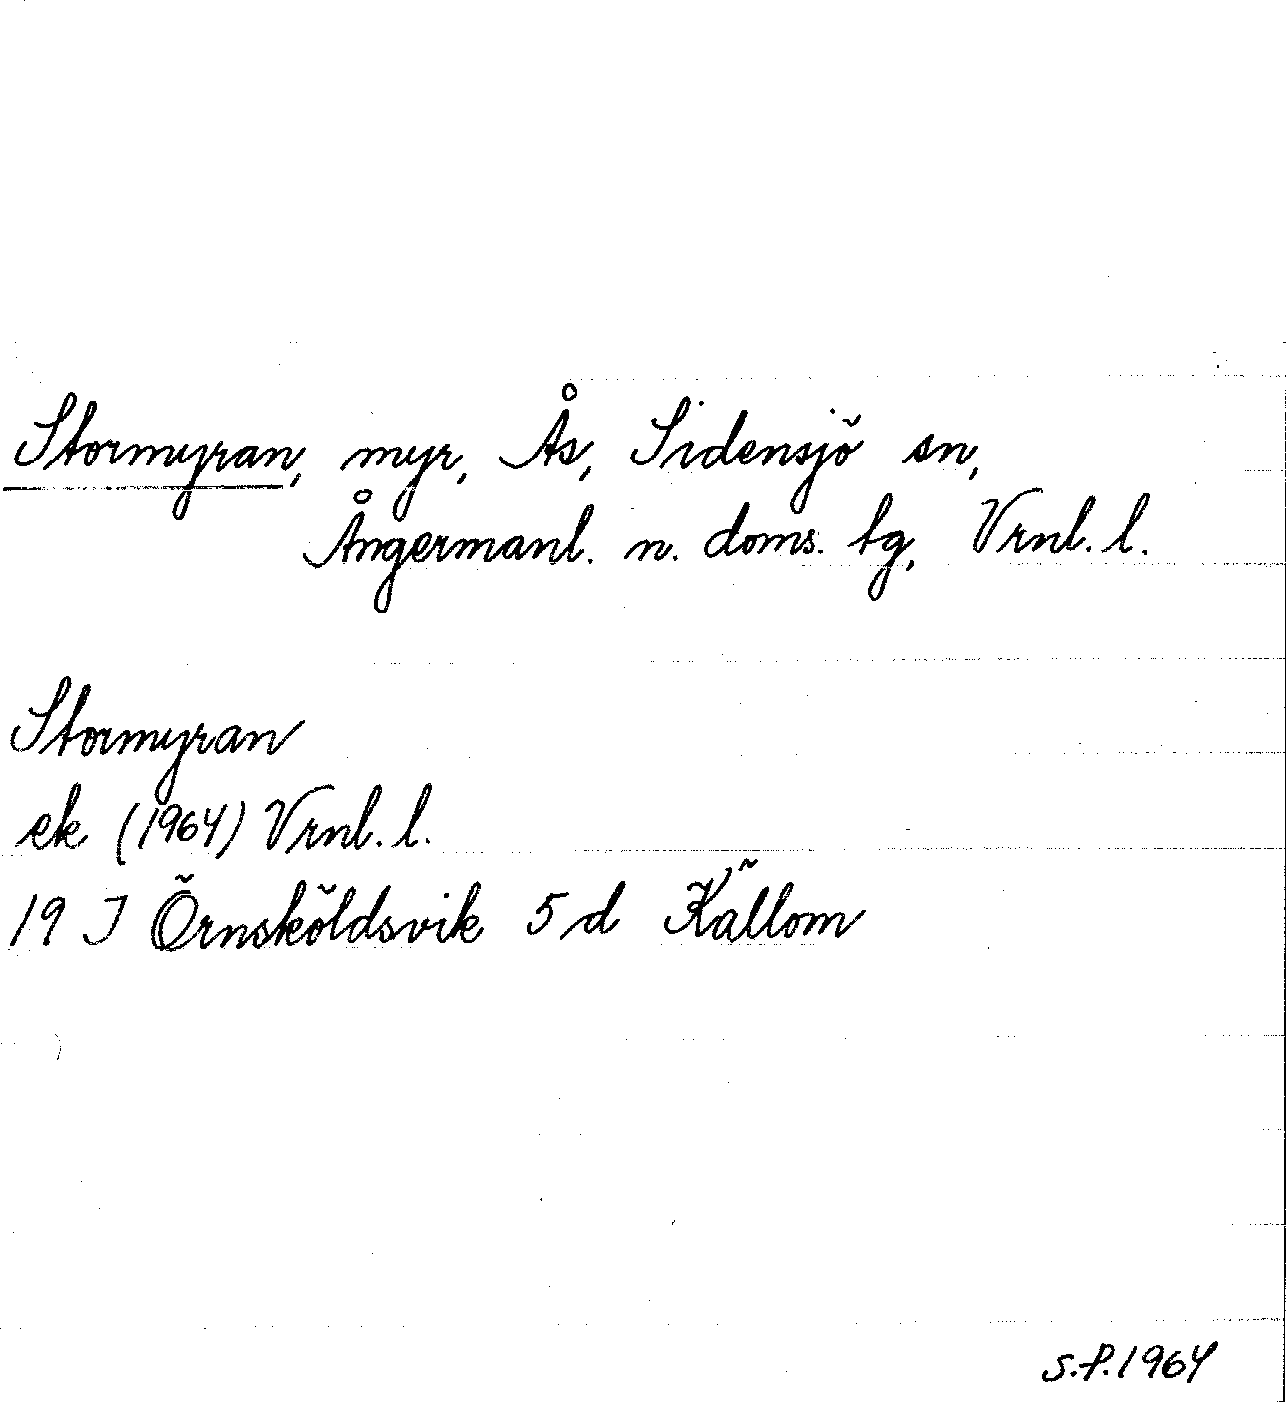 Stormyran, myr, Ås, Sidensjö sn,
Ångermanl. n. doms. tg, Vrnl. l.
Stormyran
ek (1964) Vrnl. l.
19 J Örnsköldsvik 5 d Källom
S.P. 1964